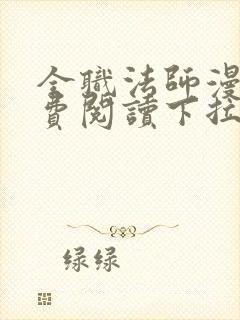 全職法師漫
費閱讀下拉
绿绿